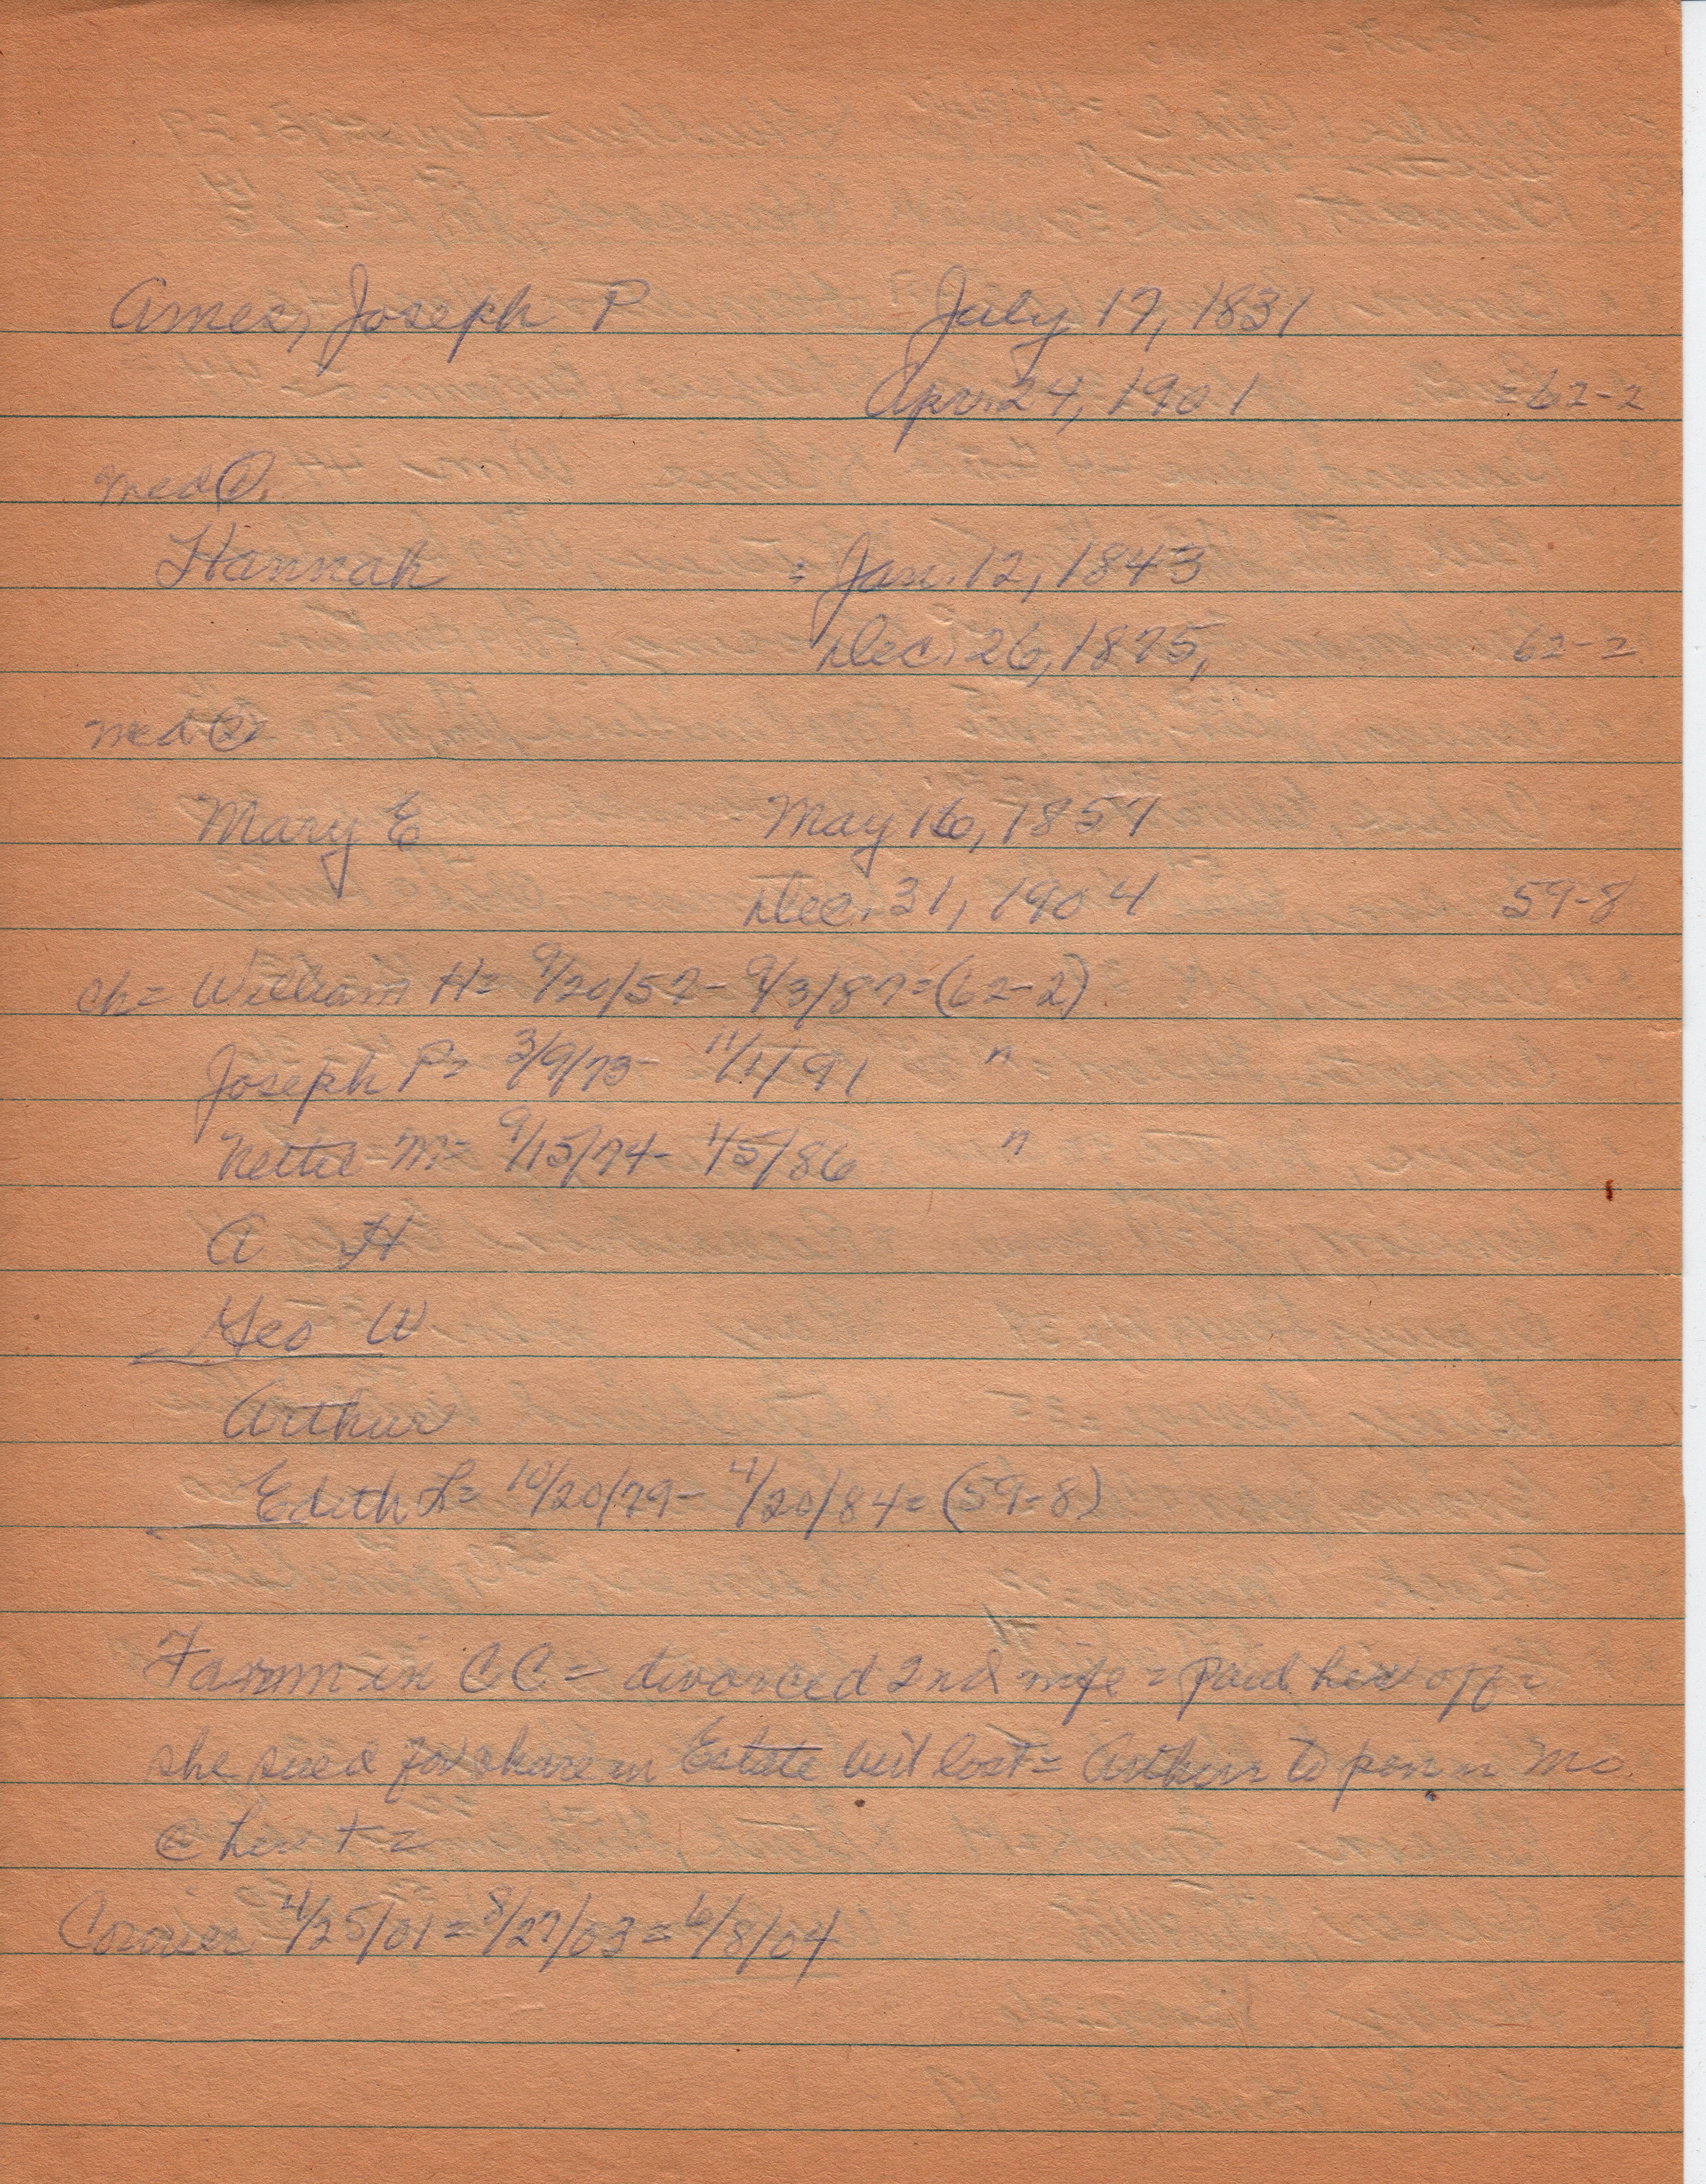 Ames, Joseph P July 17, 1831
Apr. 24, 1901 = 62-2
med ①
Hannah = Jan. 12, 1843
Dec. 26, 1875, 62-2
med ②
Mary E May 16, 1857
Dec. 31, 1904 59-8
ch = William H = 9/20/57 - 9/3/87 = (62-2)
Joseph P = 3/9/73 - 11/1/91 "
Nettie M = 9/15/74 - 1/5/86 "
A H
Geo W
Arthur
Edith L = 10/20/79 - 4/20/84 = (59-8)
Farm in CC = divorced 2nd wife = paid her off =
she sued for share in Estate but lost = Arthur to pen in Mo.
Courier 4/25/01 = 8/27/03 = 6/8/04